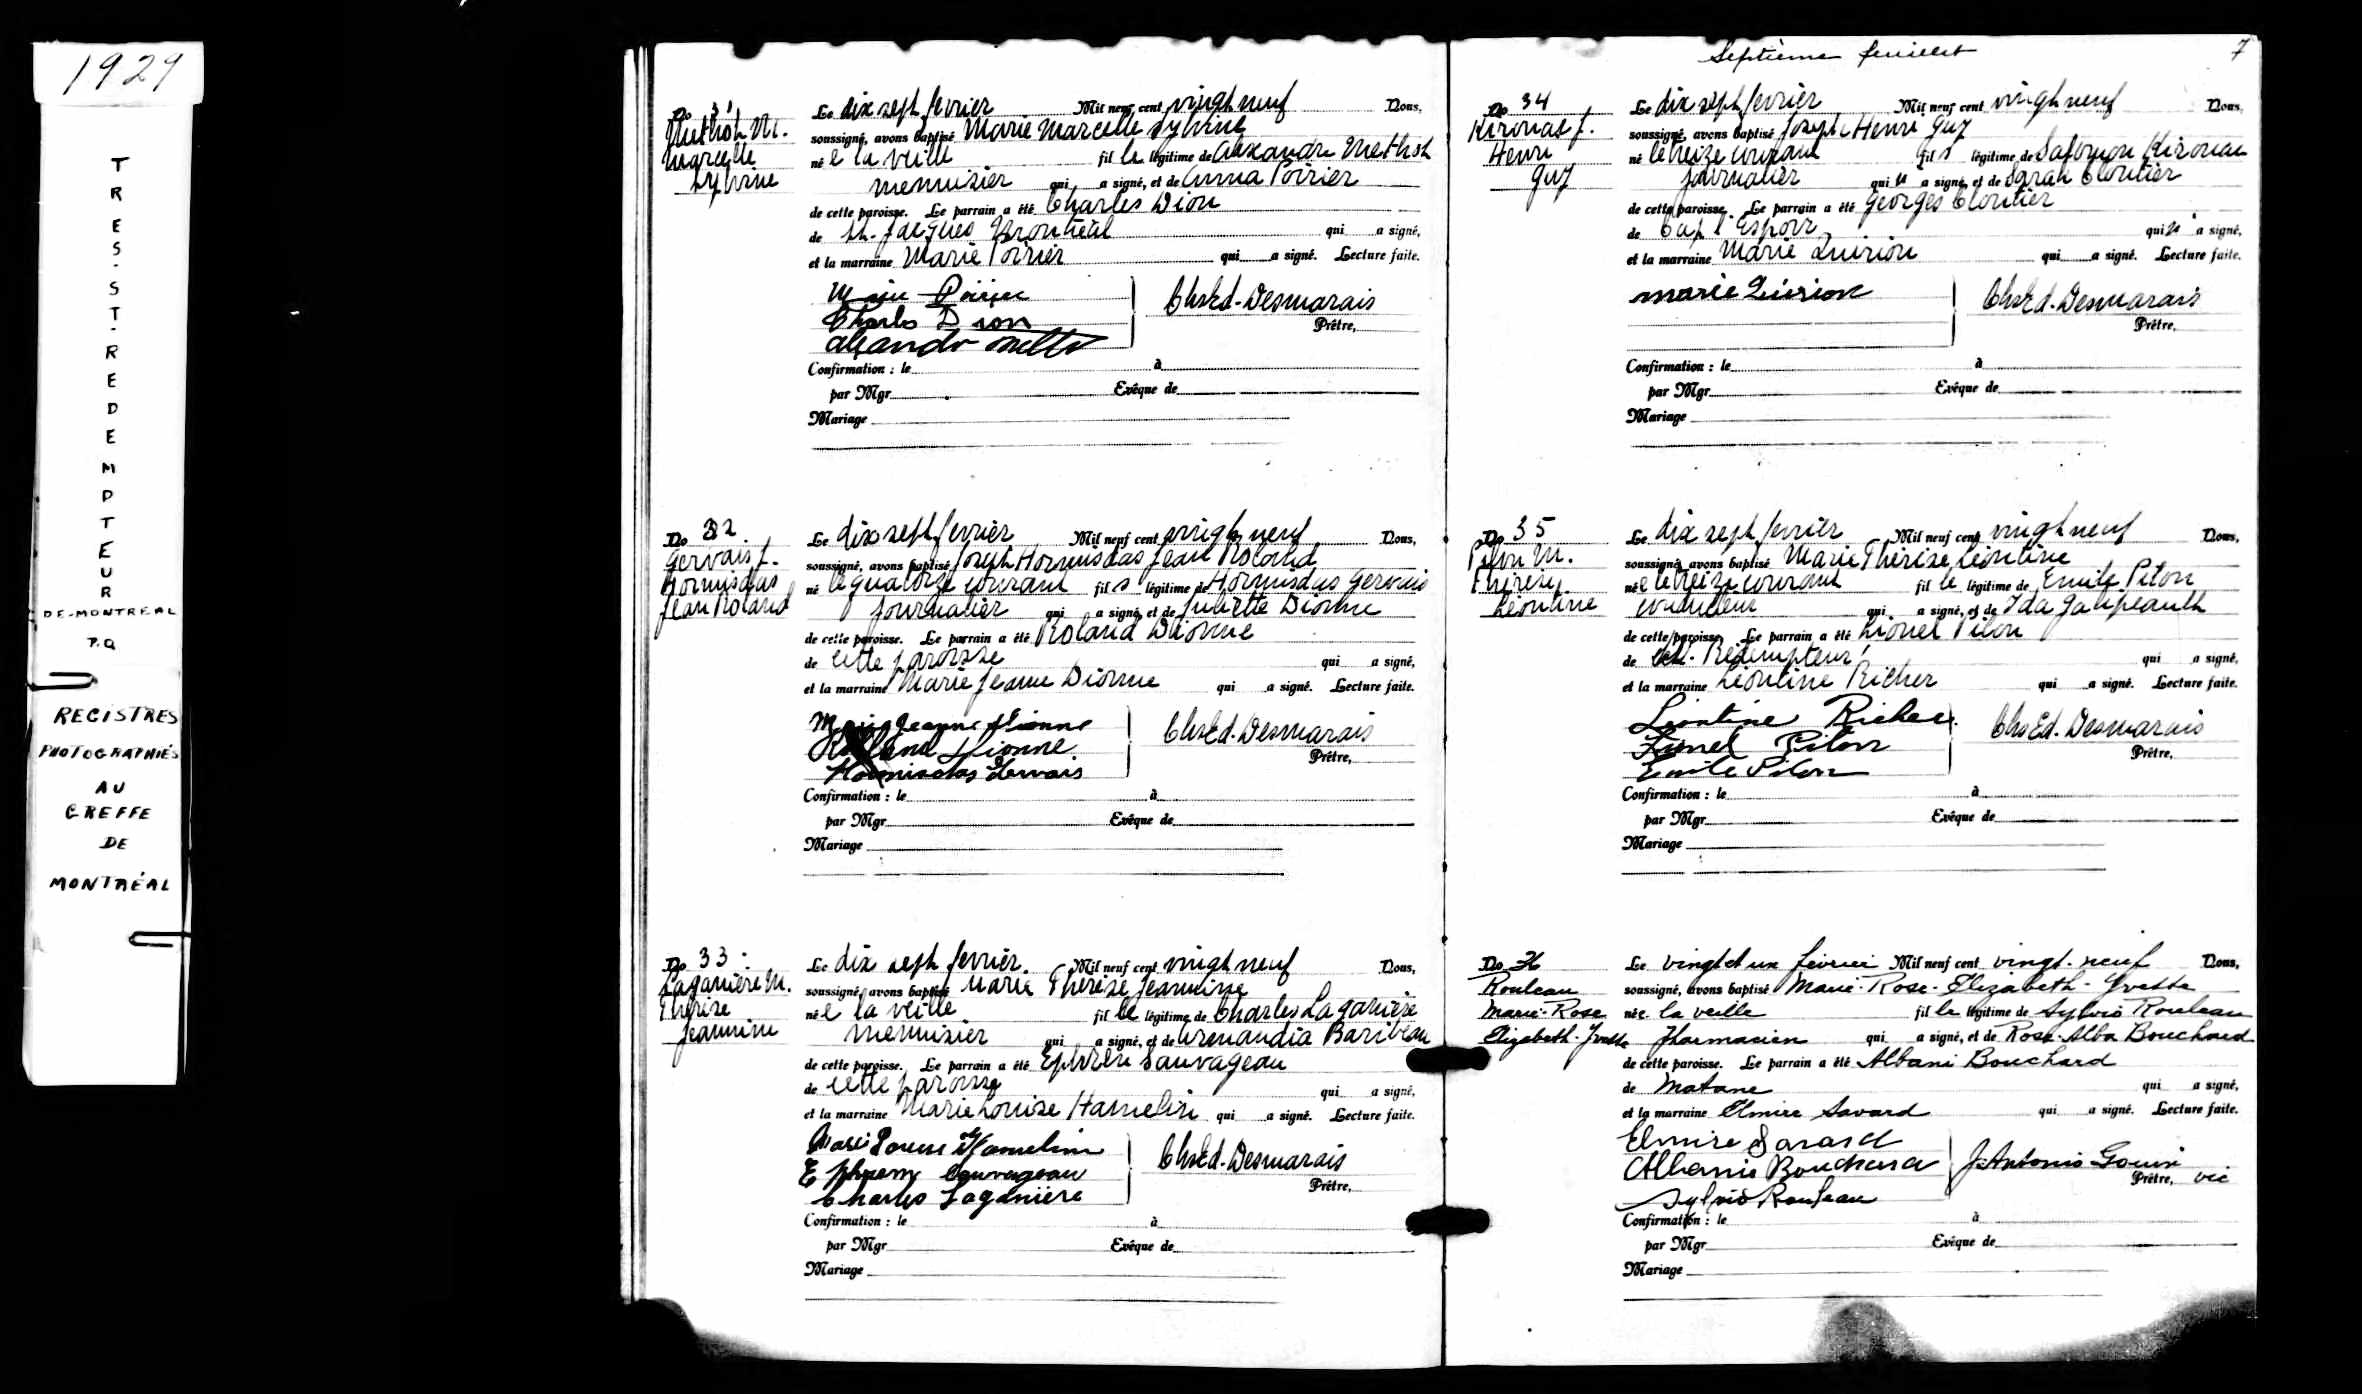 1929
TRES-ST-REDEMPTEUR
DE-MONTREAL
P.Q
REGISTRES
PHOTOGRAPHIÉS
AU
GREFFE
DE
MONTRÉAL
No 31
M.
Marcelle
Sylvine
Le dix sept fevrier Mil neuf cent vingt neuf Nous,
soussigné, avons baptisé Marie Marcelle Sylvine
né e la veille fil le légitime de Alexandre
menuisier qui a signé, et de Anna Poirier
de cette paroisse. Le parrain a été Charles Dion
de St. Jacques Montréal qui a signé,
et la marraine Marie Poirier qui a signé. Lecture faite.
Marie Poirier
Charles Dion
Chs Ed. Desmarais
Prêtre,
Confirmation : le à
par Mgr Evêque de
Mariage
No 32.
Gervais J.
Hormisdas
Jean Roland
Le dix sept fevrier Mil neuf cent vingt neuf Nous,
soussigné, avons baptisé Joseph Hormisdas Jean Roland
né le quatorze courant fil s légitime de Hormisdas Gervais
journalier qui a signé, et de Juliette Dionne
de cette paroisse. Le parrain a été Roland Dionne
de cette paroisse qui a signé,
et la marraine Marie Jeanne Dionne qui a signé. Lecture faite.
Marie Jeanne Dionne
Rolland Dionne
Hormisdas Gervais
Chs Ed. Desmarais
Prêtre,
Confirmation : le à
par Mgr Evêque de
Mariage
No 33.
Laganière M.
Thérèse
Jeannine
Le dix sept fevrier Mil neuf cent vingt neuf Nous,
soussigné, avons baptisé Marie Thérèse Jeannine
né e la veille fil le légitime de Charles Laganière
menuisier qui a signé, et de Armandia Baribeau
de cette paroisse. Le parrain a été Ephrem Sauvageau
de cette paroisse qui a signé,
et la marraine Marie Louise Hamelin qui a signé. Lecture faite.
Marie Louise Hamelin
Ephrem Sauvageau
Charles Laganière
Chs Ed. Desmarais
Prêtre,
Confirmation : le à
par Mgr Evêque de
Mariage
Septième feuillet 7
No 34
Kirouac J.
Henri
Guy
Le dix sept fevrier Mil neuf cent vingt neuf Nous,
soussigné, avons baptisé Joseph Henri Guy
né le treize courant fil s légitime de Salomon Kirouac
journalier qui n' a signé, et de Sarah Cloutier
de cette paroisse. Le parrain a été Georges Cloutier
de Cap l'Espoir qui n' a signé,
et la marraine Marie Quirion qui a signé. Lecture faite.
Marie Quirion
Chs Ed. Desmarais
Prêtre,
Confirmation : le à
par Mgr Evêque de
Mariage
No 35
Pilon M.
Thérèse
Léontine
Le dix sept fevrier Mil neuf cent vingt neuf Nous,
soussigné, avons baptisé Marie Thérèse Léontine
né e le treize courant fil le légitime de Emile Pilon
qui a signé, et de Ida Galipeault
de cette paroisse. Le parrain a été Lionel Pilon
de Rédempteur qui a signé,
et la marraine Léontine Richer qui a signé. Lecture faite.
Léontine Richer
Lionel Pilon
Emile Pilon
Chs Ed. Desmarais
Prêtre,
Confirmation : le à
par Mgr Evêque de
Mariage
No
Rouleau
Marie-Rose
Elizabeth-Yvette
Le vingt et un fevrier Mil neuf cent vingt-neuf Nous,
soussigné, avons baptisé Marie-Rose-Elizabeth-Yvette
née la veille fil le légitime de Sylvio Rouleau
Pharmacien qui a signé, et de Rose-Alba Bouchard
de cette paroisse. Le parrain a été Albani Bouchard
de Matane qui a signé,
et la marraine Elmire Savard qui a signé. Lecture faite.
Elmire Savard
Albanie Bouchard
Sylvio Rouleau
J. Antonio Gouin
Prêtre, vic
Confirmation : le à
par Mgr Evêque de
Mariage